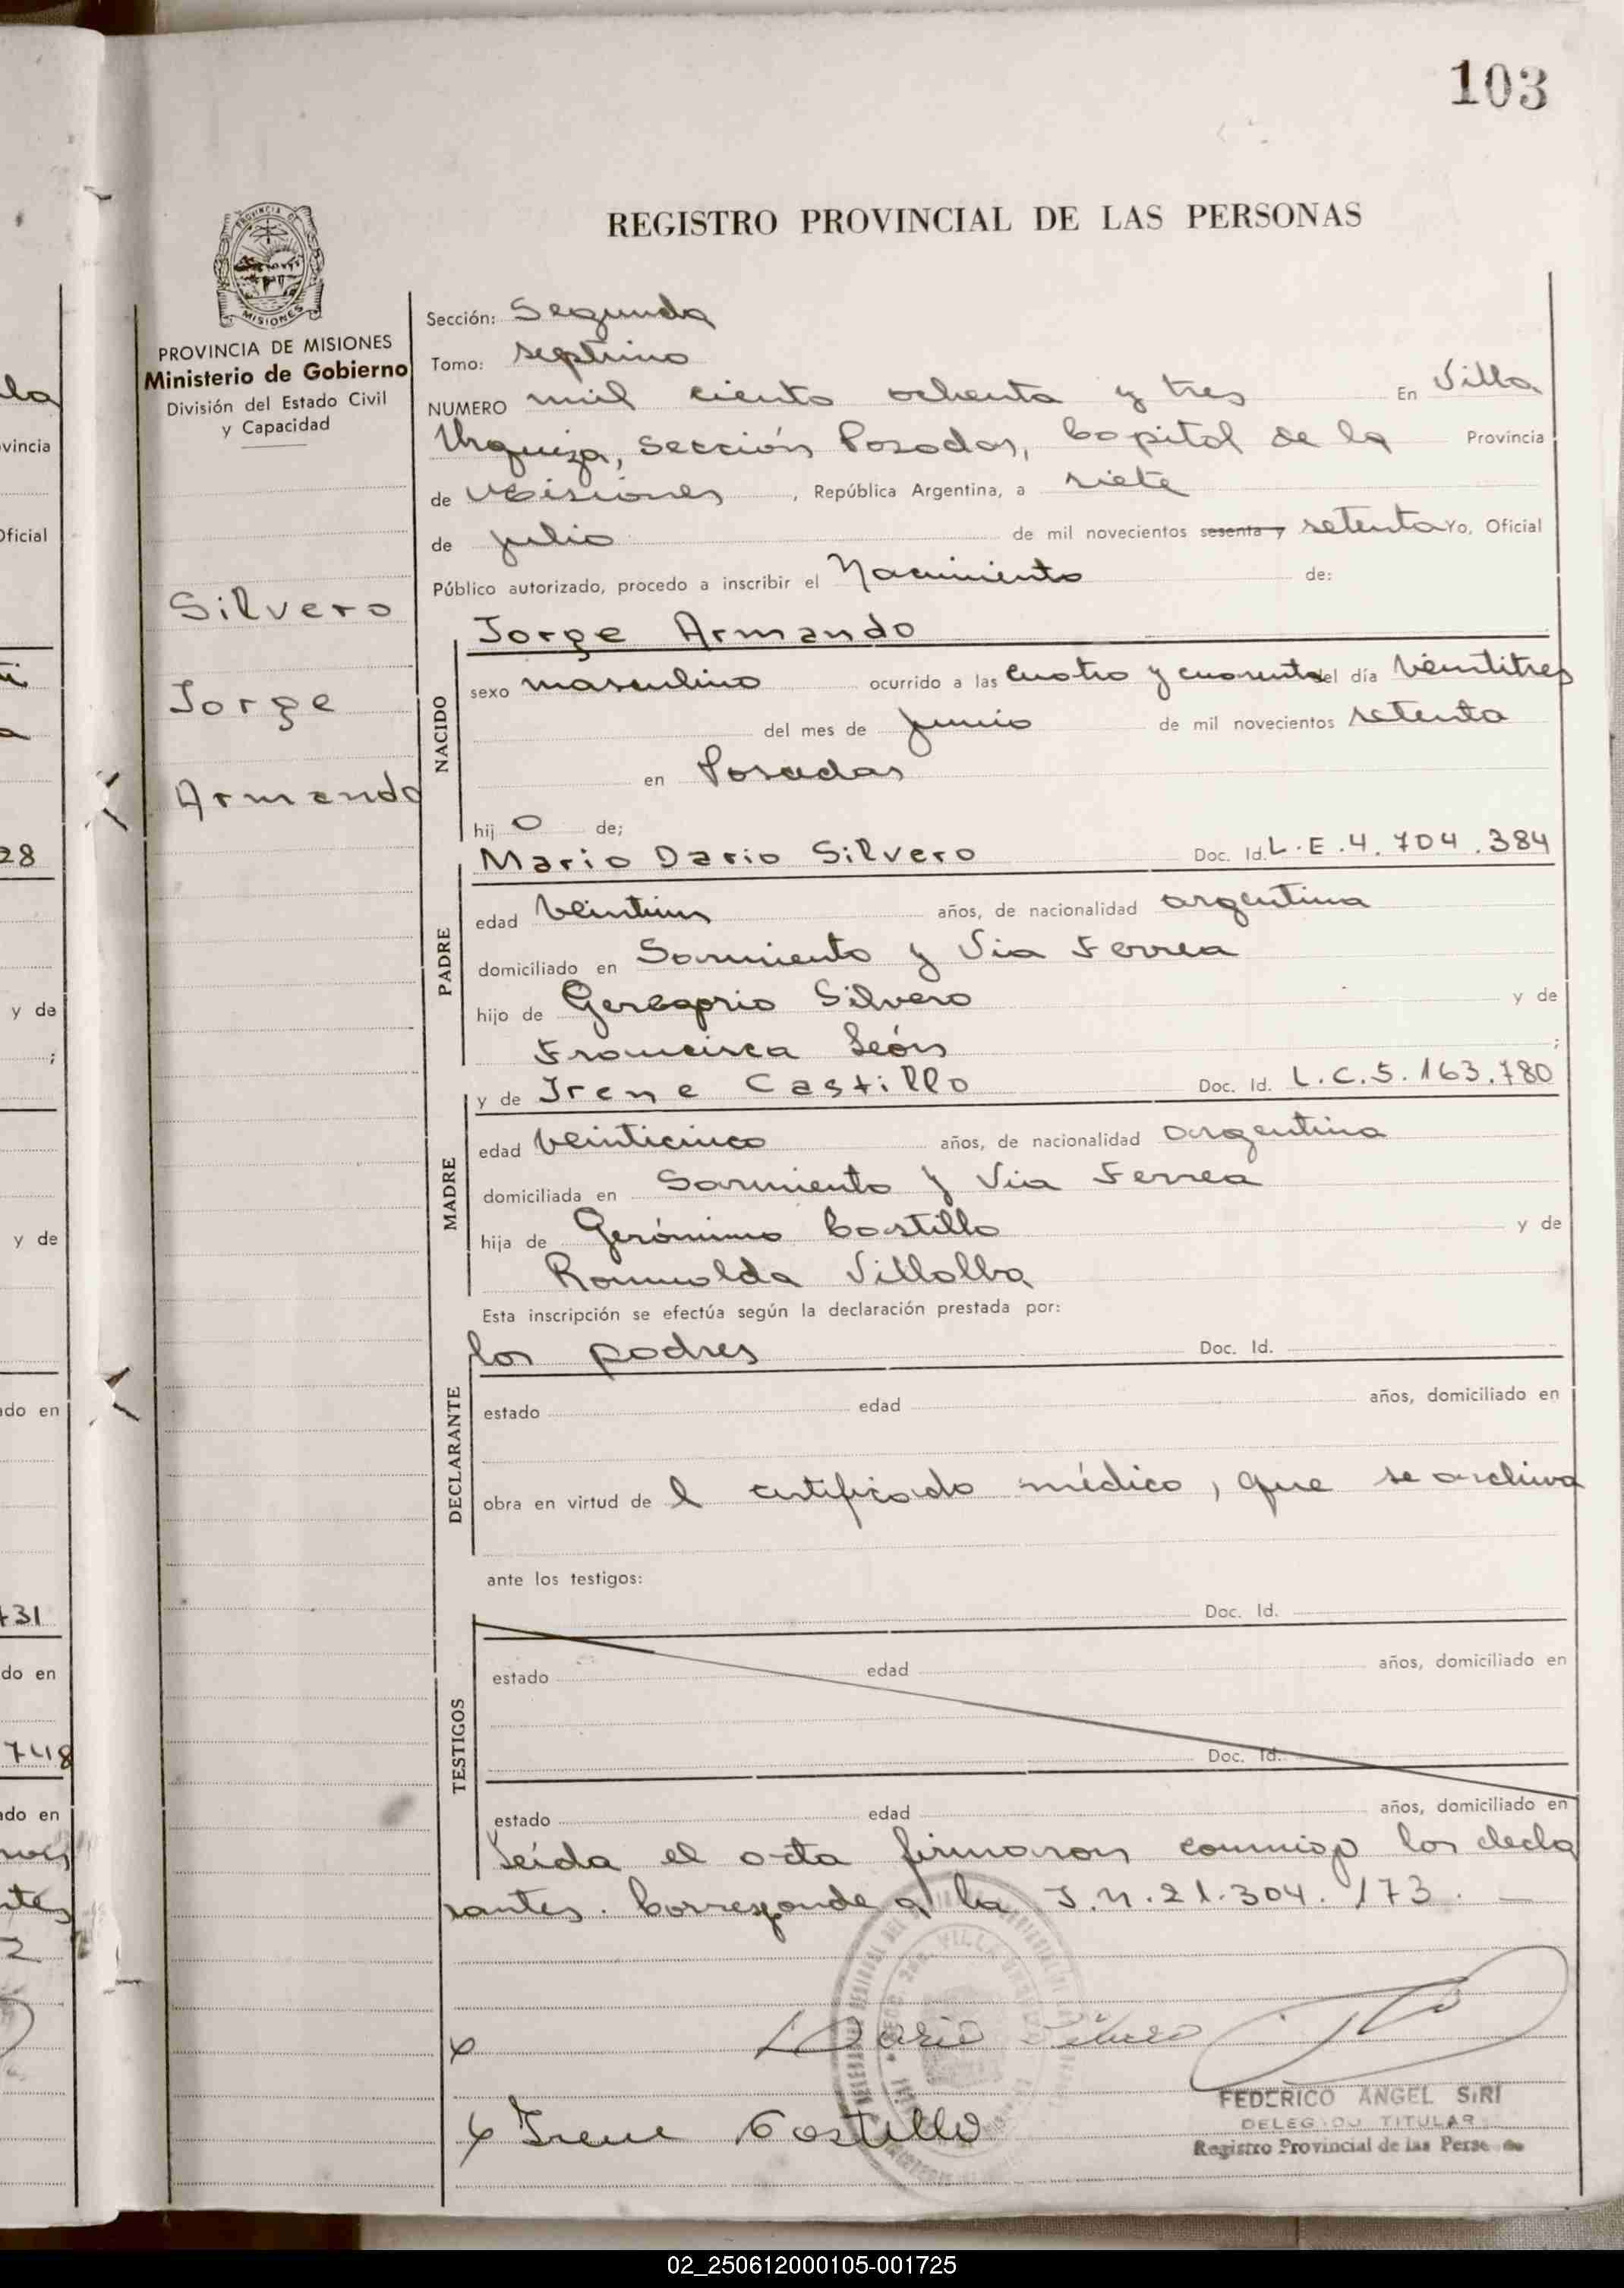 103
REGISTRO PROVINCIAL DE LAS PERSONAS
PROVINCIA DE
MISIONES
PROVINCIA DE MISIONES
Ministerio de Gobierno
División del Estado Civil
y Capacidad
Silvero
Jorge
Armando
Sección: Segunda
Tomo: septimo
NUMERO mil ciento ochenta y tres En Villa
Urquiza, sección Posadas, Capital de la Provincia
de Misiones, República Argentina, a siete
de julio de mil novecientos sesenta y setenta Yo, Oficial
Público autorizado, procedo a inscribir el Nacimiento de:
Jorge Armando
NACIDO
sexo masculino ocurrido a las cuatro y cuarenta del día veintitres
del mes de junio de mil novecientos setenta
en Posadas
hij o de;
Mario Dario Silvero Doc. Id. L.E.4.704.384
PADRE
edad veintiun años, de nacionalidad argentina
domiciliado en Sarmiento y Via Ferrea
hijo de Silvero y de
Francisca León ;
y de Irene Castillo Doc. Id. L.C.5.163.780
MADRE
edad veinticinco años, de nacionalidad argentina
domiciliada en Sarmiento y Via Ferrea
hija de Gerónimo Castillo y de
Romualda Villalba
Esta inscripción se efectúa según la declaración prestada por:
los padres Doc. Id.
DECLARANTE
estado edad años, domiciliado en
obra en virtud de l certificado médico, que se archiva
ante los testigos:
Doc. Id.
TESTIGOS
estado edad años, domiciliado en
Doc. Id.
estado edad años, domiciliado en
Leída el acta firmaron conmigo los decla
rantes. Corresponde a la I.N.21.304.173.
Dario Silvero
Irene Castillo
FEDERICO ANGEL SIRI
DELEGADO TITULAR
Registro Provincial de las Perso
la
vincia
Oficial
28
y de
;
y de
do en
731
do en
748
do en
02_250612000105-001725